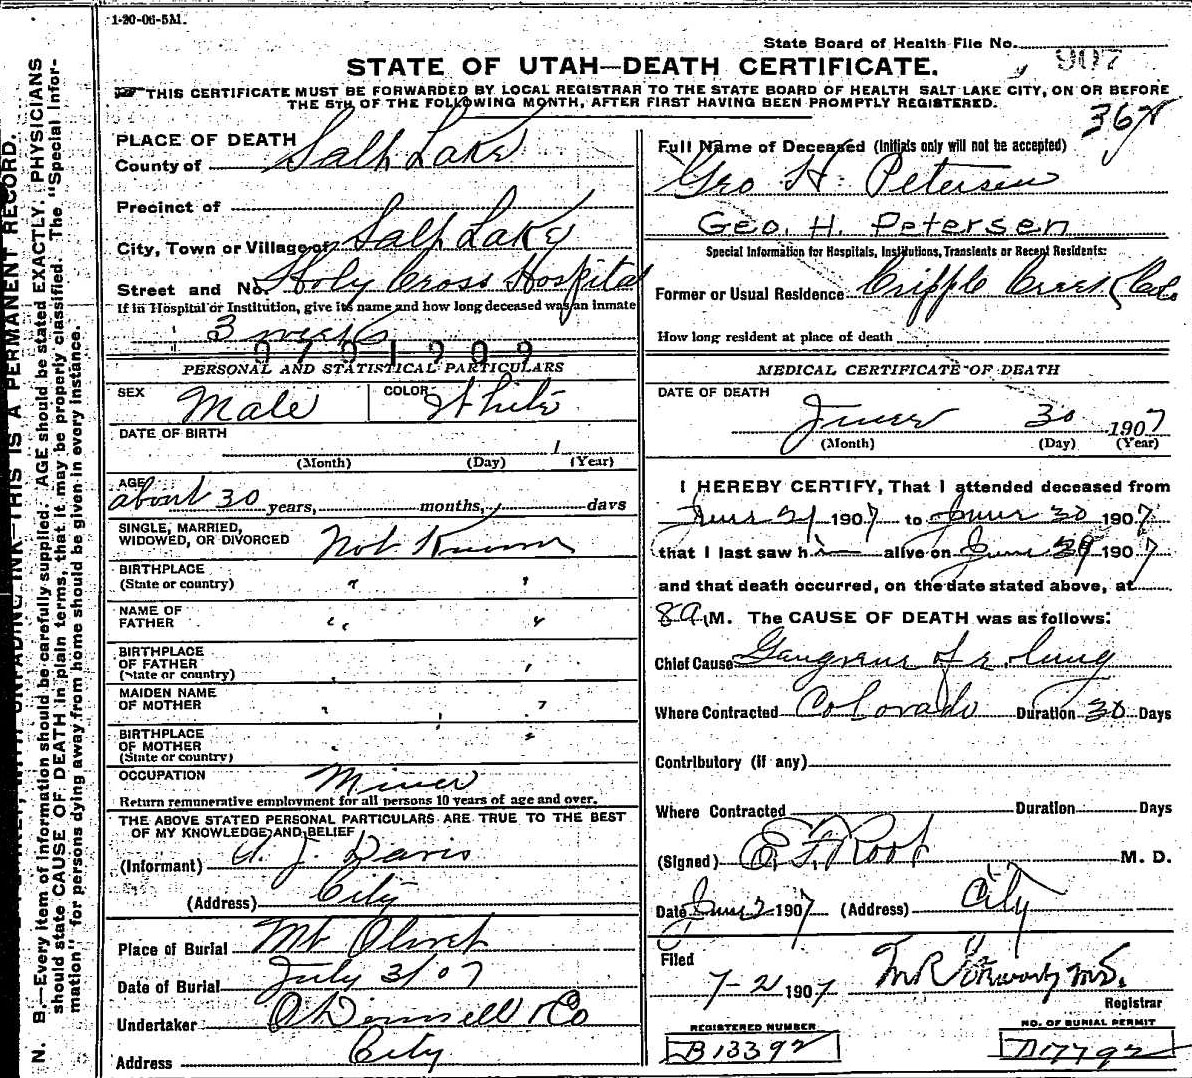 1-20-06-5M.
State Board of Health File No.
907
STATE OF UTAH—DEATH CERTIFICATE.
THIS CERTIFICATE MUST BE FORWARDED BY LOCAL REGISTRAR TO THE STATE BOARD OF HEALTH SALT LAKE CITY, ON OR BEFORE
THE 5TH OF THE FOLLOWING MONTH, AFTER FIRST HAVING BEEN PROMPTLY REGISTERED.
N. B.—Every item of information should be carefully supplied. AGE should be stated EXACTLY. PHYSICIANS
should state CAUSE OF DEATH in plain terms, that it may be properly classified. The "Special Infor-
mation" for persons dying away from home should be given in every instance.
THIS IS A PERMANENT RECORD.
PLACE OF DEATH
County of Salt Lake
Precinct of
City, Town or Village of Salt Lake
Street and No. Holy Cross Hospital
If in Hospital or Institution, give its name and how long deceased was an inmate
3 weeks
PERSONAL AND STATISTICAL PARTICULARS
SEX Male COLOR White
DATE OF BIRTH
(Month) (Day) (Year)
AGE about 30 years, months, days
SINGLE, MARRIED,
WIDOWED, OR DIVORCED Not Known
BIRTHPLACE
(State or country) " "
NAME OF
FATHER " "
BIRTHPLACE
OF FATHER
(State or country)
MAIDEN NAME
OF MOTHER
BIRTHPLACE
OF MOTHER
(State or country)
OCCUPATION Miner
Return remunerative employment for all persons 10 years of age and over.
THE ABOVE STATED PERSONAL PARTICULARS ARE TRUE TO THE BEST
OF MY KNOWLEDGE AND BELIEF
(Informant) J. Davis
(Address) City
Place of Burial Mt Olivet
Date of Burial July 3/07
Undertaker O'Donnell & Co
Address City
367
Full Name of Deceased (Initials only will not be accepted)
Geo H. Petersen
Geo. H. Petersen
Special Information for Hospitals, Institutions, Transients or Recent Residents:
Former or Usual Residence Cripple Creek Colo
How long resident at place of death
MEDICAL CERTIFICATE OF DEATH
DATE OF DEATH
June 30 1907
(Month) (Day) (Year)
I HEREBY CERTIFY, That I attended deceased from
June 21 1907 to June 30 1907
that I last saw him alive on June 29 1907
and that death occurred, on the date stated above, at
8 A M. The CAUSE OF DEATH was as follows:
Chief Cause Gangrene of Lung
Where Contracted Colorado Duration 30 Days
Contributory (if any)
Where Contracted Duration Days
(Signed) E. F. Root M. D.
Date 2 1907 (Address) City
Filed
7-2 1907 M.D.
Registrar
REGISTERED NUMBER
B13392
NO. OF BURIAL PERMIT
D17792